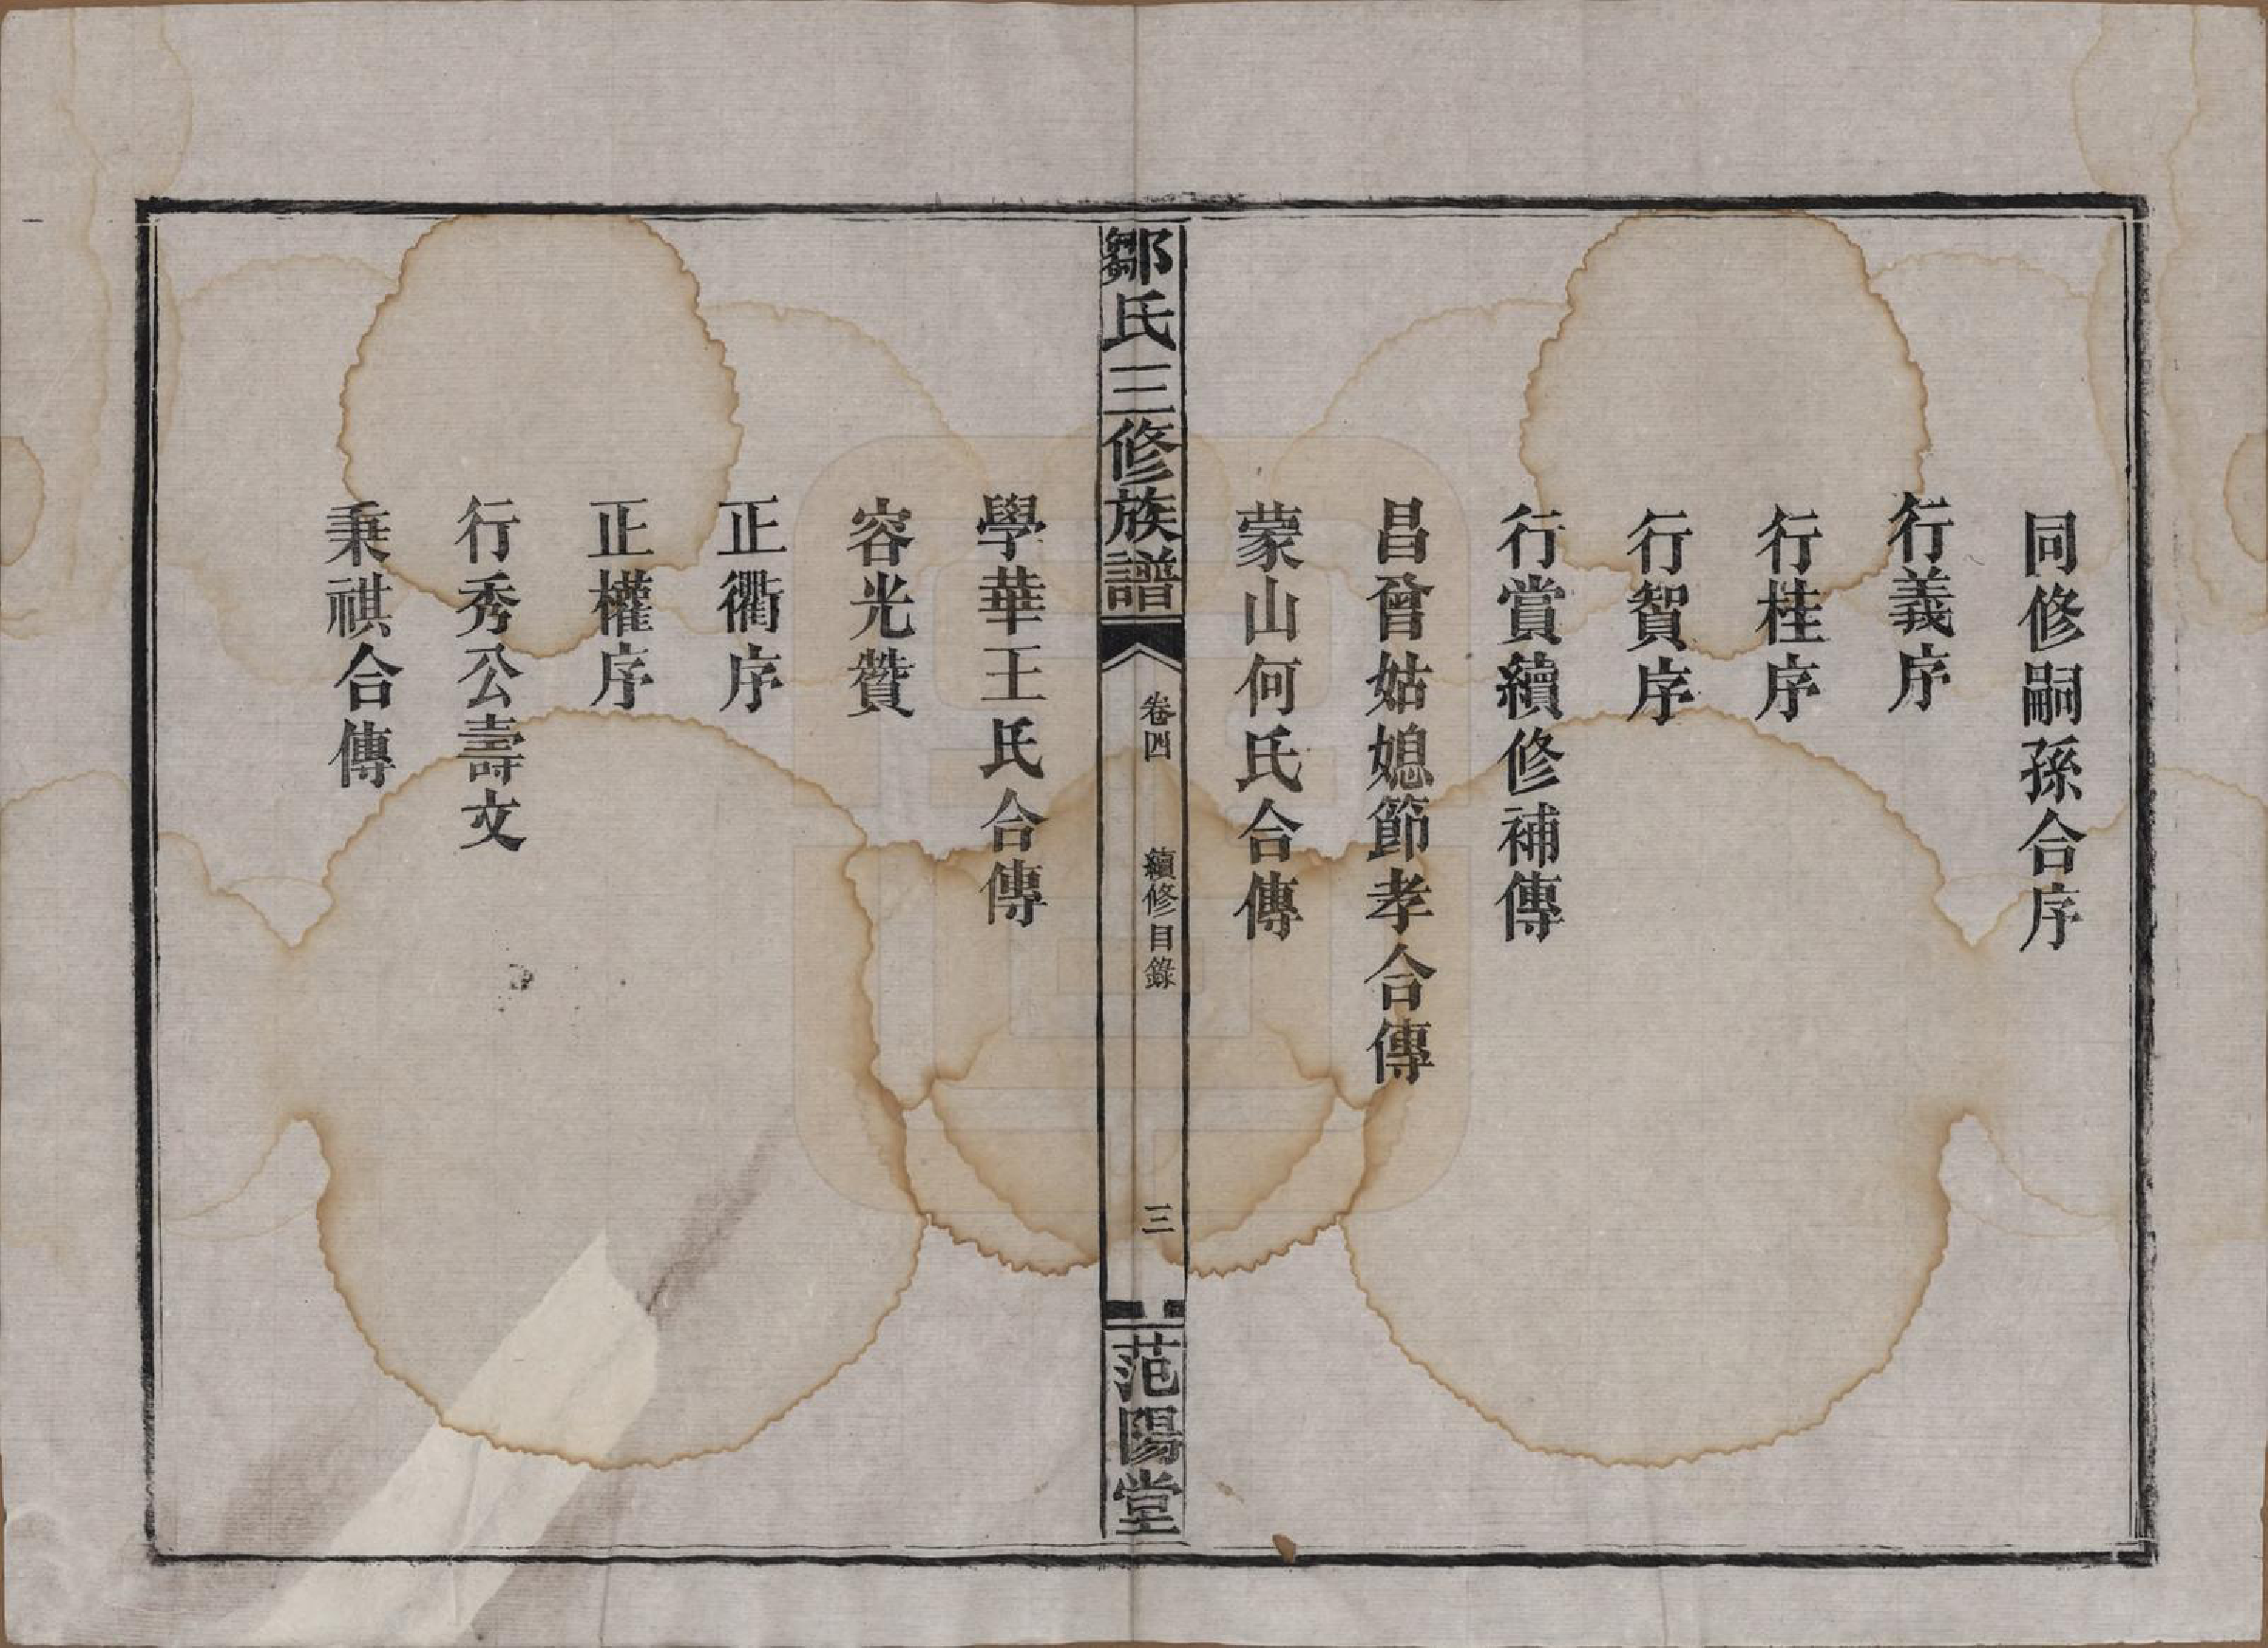 同修嗣孫合序
行義序
行桂序
行賀序
行賞續修補傳
昌曾姑媳節孝合傳
蒙山何氏合傳
鄒氏三修族譜
卷四
續修目錄
三
范陽堂
學華王氏合傳
容光贊
正衢序
正權序
行秀公壽文
秉祺合傳